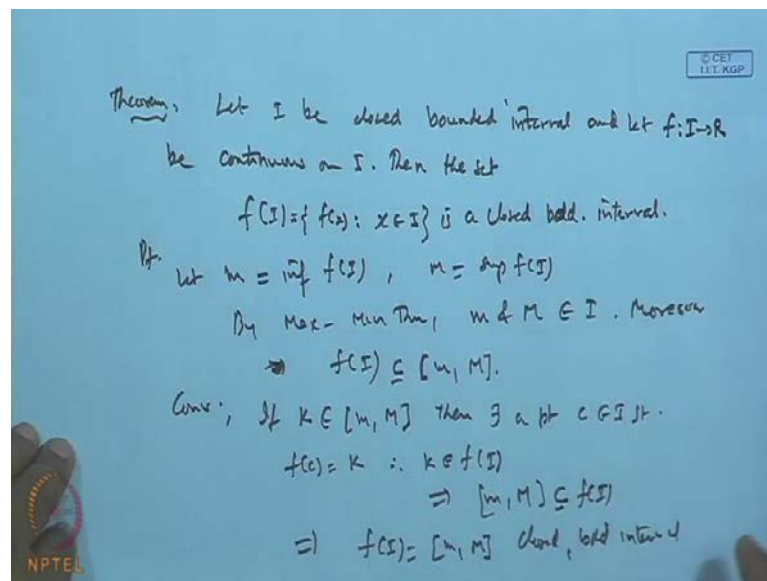 © CET
I.I.T. KGP
Theorem. Let I be closed bounded interval and let f: I→R
be continuous on I. Then the set
f(I) = { f(x) : x ∈ I } is a closed bdd. interval.
Pf.
Let m = inf f(I) , M = sup f(I)
By Max-Min Thm, m & M ∈ I. Moreover
⇒ f(I) ⊆ [m, M].
Conv., If K ∈ [m, M] then ∃ a pt c ∈ I st.
f(c) = K ∴ K ∈ f(I)
⇒ [m, M] ⊆ f(I)
⇒ f(I) = [m, M] closed, bdd interval
NPTEL